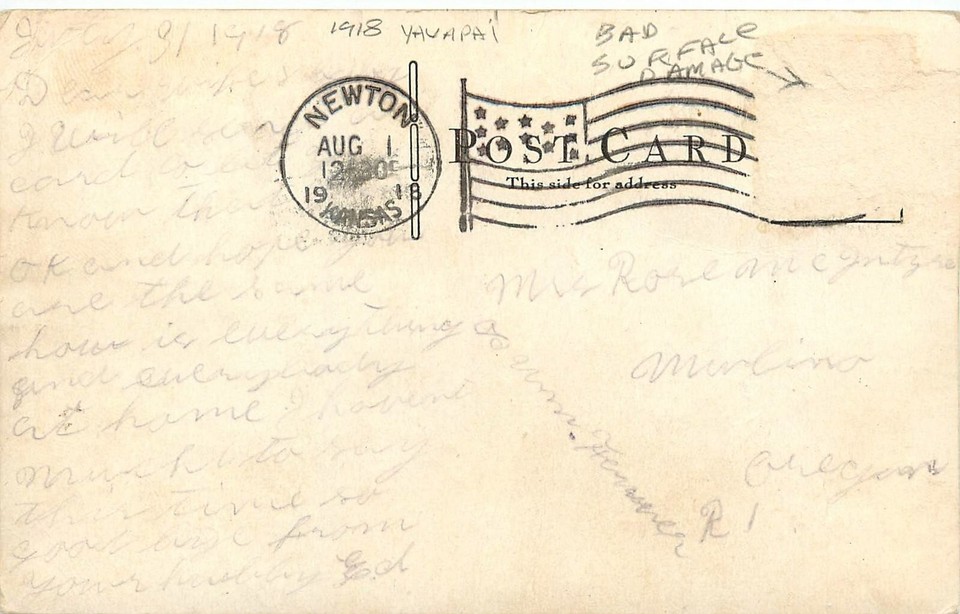 1918 YAVAPAI
BAD
SURFACE
DAMAGE
NEWTON
AUG 1
19 18
KANSAS
POST CARD
This side for address
31 1918
Dear
I will
card
know that
OK and hope you
are the same
how is everything
and everybody
at home I havent
much to say
this time so
good bye from
your hubby Ed
Mrs Rose
Mulino
Oregon
R 1